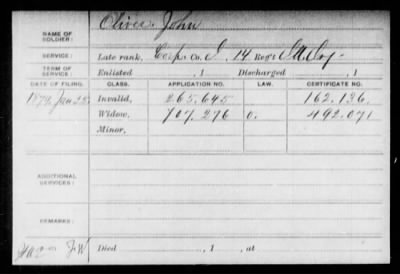 NAME OF SOLDIER: Oliver John
SERVICE: Late rank, Corp Co. I, 14 Reg't
TERM OF SERVICE: Enlisted , 1 Discharged , 1
DATE OF FILING. CLASS. APPLICATION NO. LAW. CERTIFICATE NO.
Invalid, 265.645 162.136
Widow, 707.276 0. 492.071
Minor,
ADDITIONAL SERVICES:
REMARKS:
Died , 1 , at